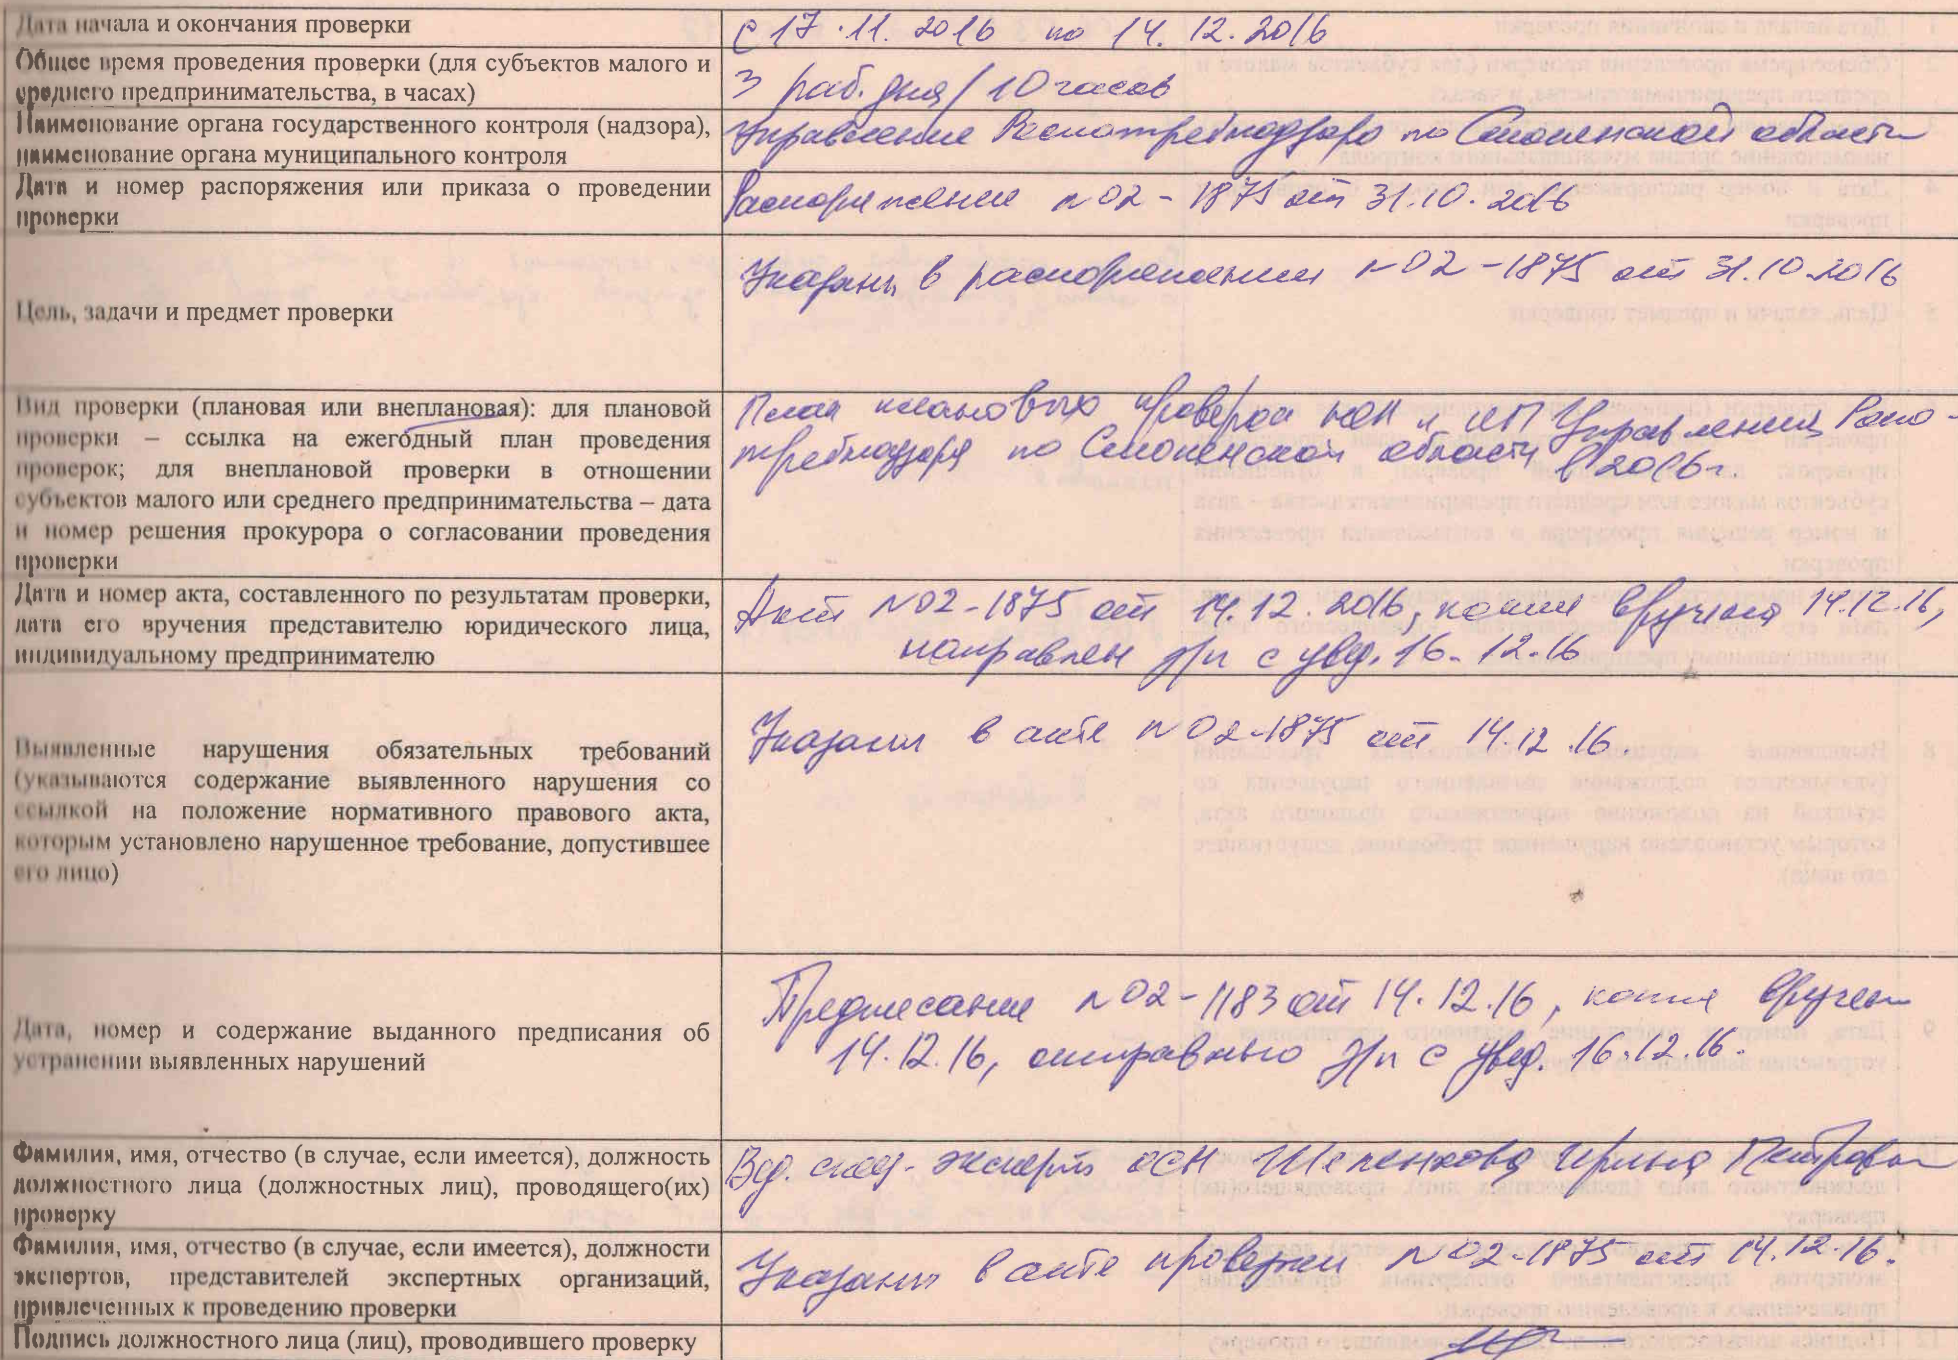 Дата начала и окончания проверки
с 17.11.2016 по 14.12.2016
Общее время проведения проверки (для субъектов малого и
среднего предпринимательства, в часах)
3 раб. дня / 10 часов
Наименование органа государственного контроля (надзора),
наименование органа муниципального контроля
Управление Роспотребнадзора по Смоленской области
Дата и номер распоряжения или приказа о проведении
проверки
Распоряжение №02-1875 от 31.10.2016
Цель, задачи и предмет проверки
Указаны в распоряжении №02-1875 от 31.10.2016
Вид проверки (плановая или внеплановая): для плановой
проверки – ссылка на ежегодный план проведения
проверок; для внеплановой проверки в отношении
субъектов малого или среднего предпринимательства – дата
и номер решения прокурора о согласовании проведения
проверки
План плановых проверок и ИП Управления Роспо-
требнадзора по Смоленской области в 2016г
Дата и номер акта, составленного по результатам проверки,
дата его вручения представителю юридического лица,
индивидуальному предпринимателю
Акт №02-1875 от 14.12.2016, копия вручена 14.12.16,
направлен з/п с увед. 16.12.16
Выявленные нарушения обязательных требований
(указываются содержание выявленного нарушения со
ссылкой на положение нормативного правового акта,
которым установлено нарушенное требование, допустившее
его лицо)
Указаны в акте №02-1875 от 14.12.16.
Дата, номер и содержание выданного предписания об
устранении выявленных нарушений
Предписание №02-1183 от 14.12.16, копия вручен
14.12.16, отправлено з/п с увед. 16.12.16.
Фамилия, имя, отчество (в случае, если имеется), должность
должностного лица (должностных лиц), проводящего(их)
проверку
Вед. спец-эксперт ОСН Шепенкова Ирина Петровна
Фамилия, имя, отчество (в случае, если имеется), должности
экспертов, представителей экспертных организаций,
привлеченных к проведению проверки
Указаны в акте проверки №02-1875 от 14.12.16.
Подпись должностного лица (лиц), проводившего проверку